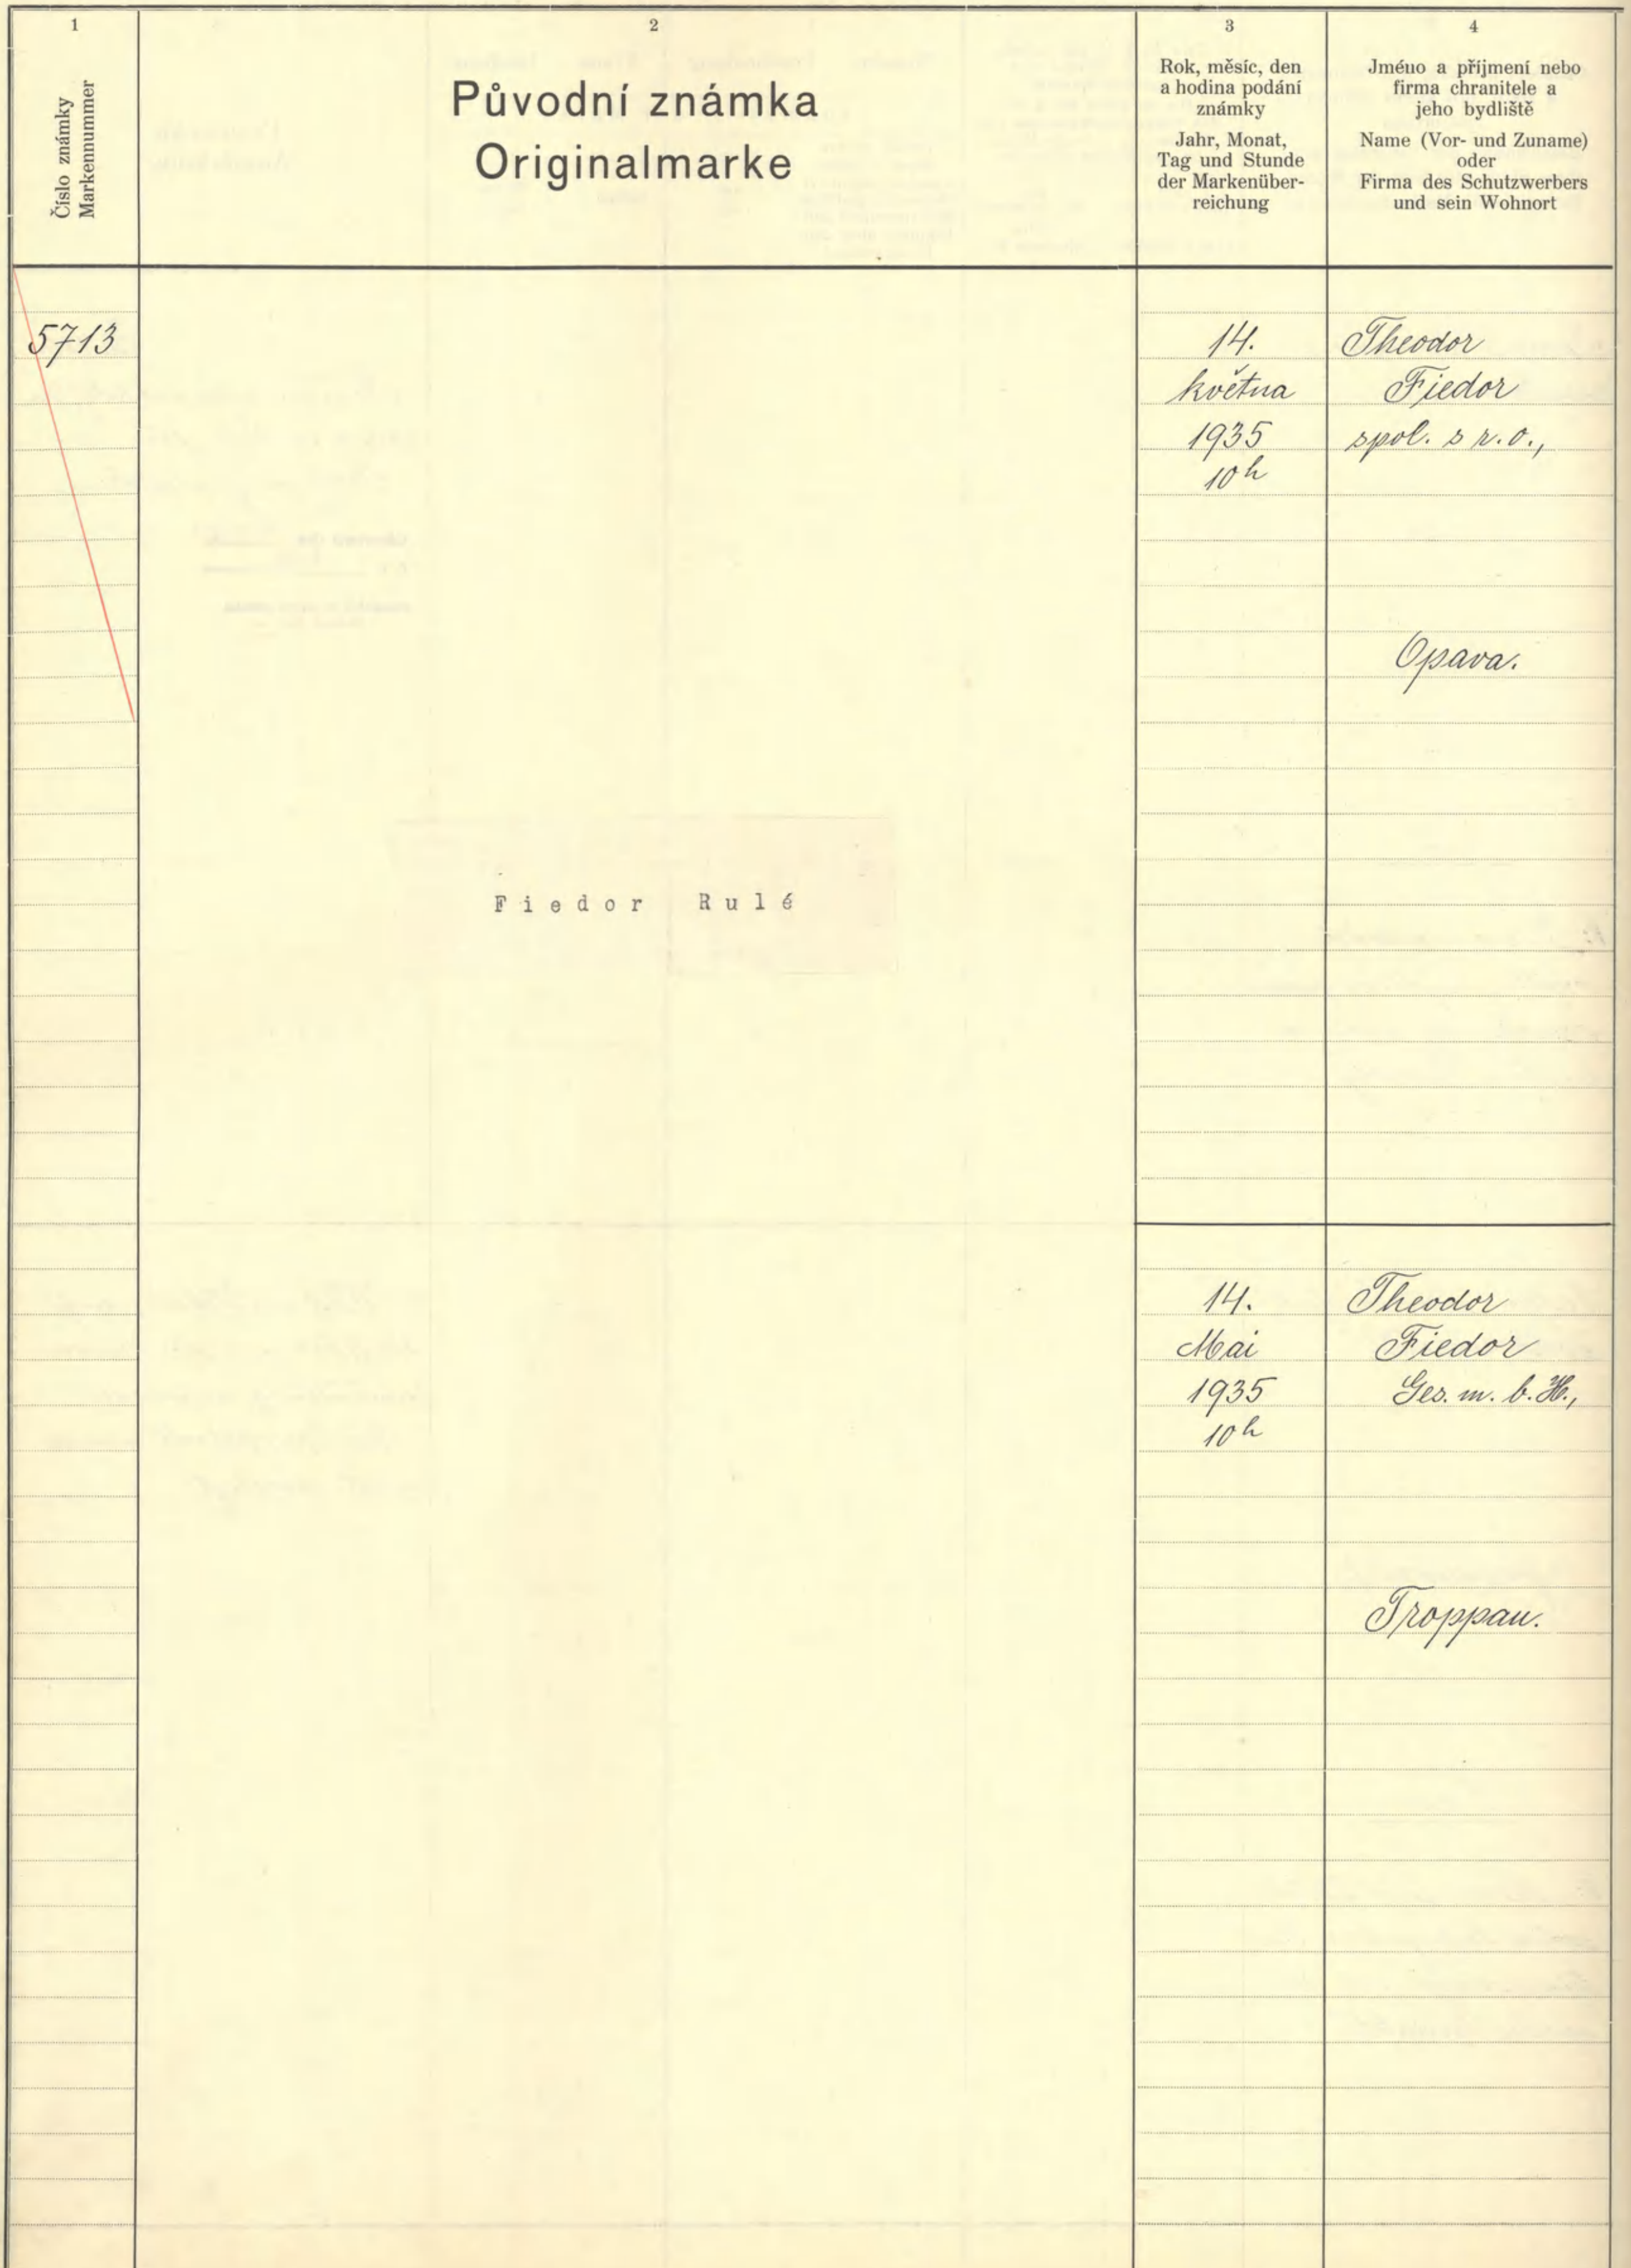 1
Číslo známky
Markennummer
2
Původní známka
Originalmarke
3
Rok, měsíc, den
a hodina podání
známky
Jahr, Monat,
Tag und Stunde
der Markenüber-
reichung
4
Jméno a příjmení nebo
firma chranitele a
jeho bydliště
Name (Vor- und Zuname)
oder
Firma des Schutzwerbers
und sein Wohnort
5713
14.
května
1935
10h
Theodor
Fiedor
spol. s r.o.,
Opava.
Fiedor Rulé
14.
Mai
1935
10h
Theodor
Fiedor
Ges. m. b. H.,
Troppau.